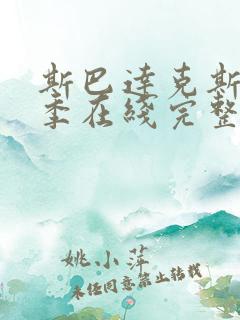 斯巴达克斯
季在线完整
姚小萍
未经同意禁止转载